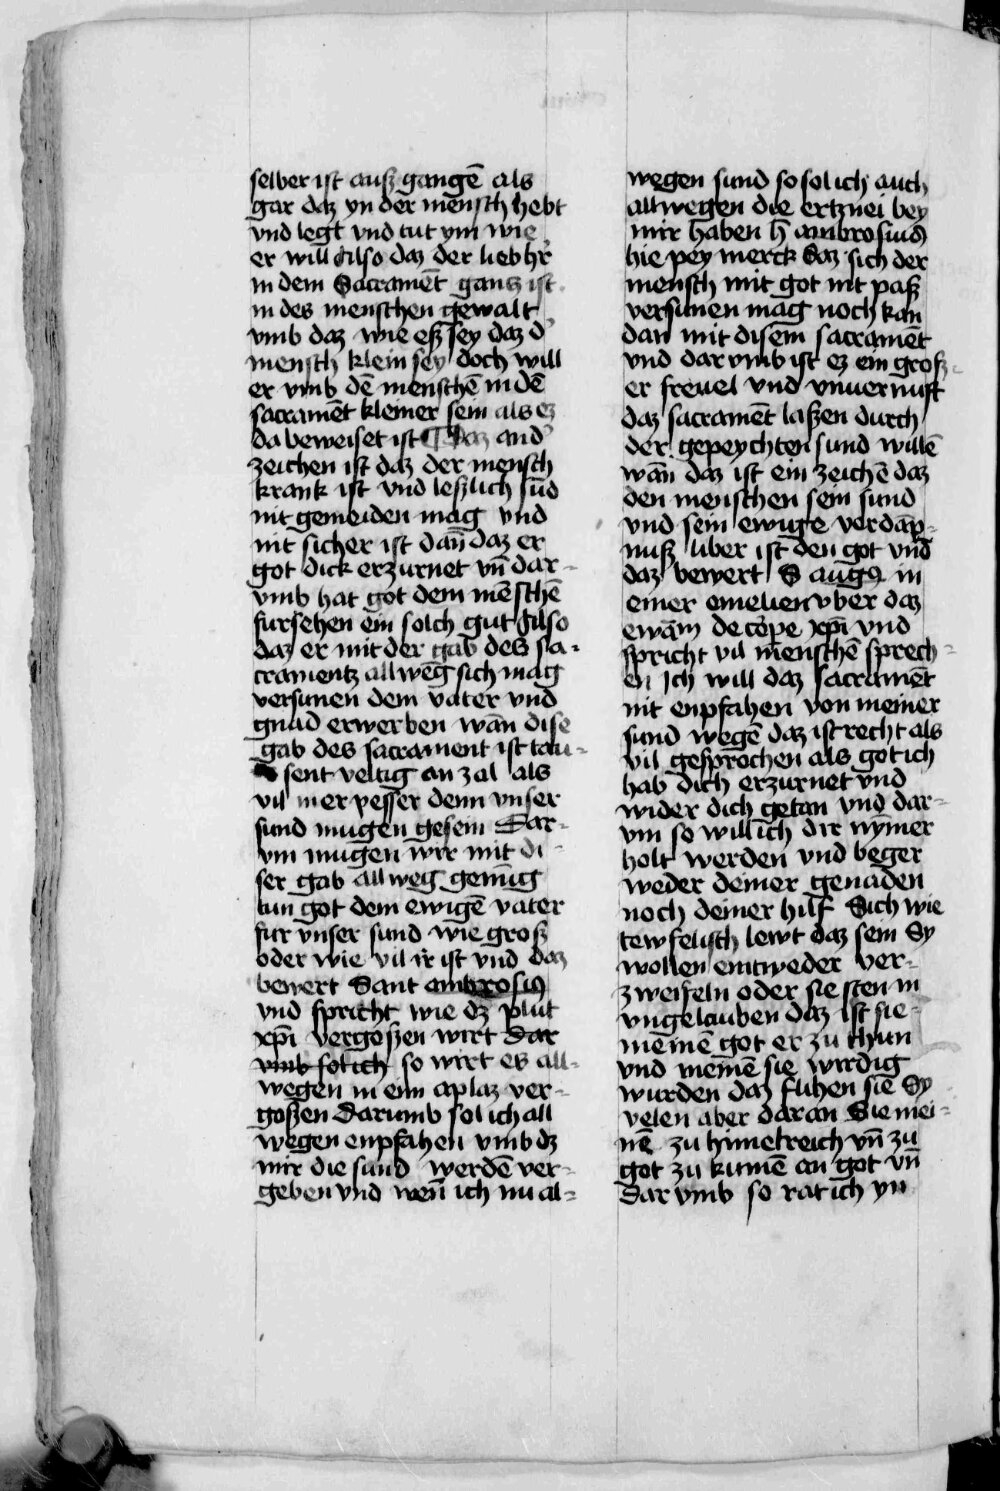 selber ist auß gangē als
gar daz yn der mensch hebt
vnd legt vnd tut ym wie
er will Also daz der lieb hr̄
in dem Sacramēt gantz ist
in des menschen gewalt
vmb daz wie eß sey daz d'
mensch klein sey doch will
er vmb dē menschē in dē
sacramēt kleiner sein als ez
da beweiset ist ¶ Daz and'
zeichen ist daz der mensch
krank ist vnd leßlich sūd
nit gemeiden mag vnd
nit sicher ist dan̄ daz er
got dick erzurnet vn̄ dar=
vmb hat got dem mēschē
fursehen ein solch gut Also
daz er mit der gab des sa=
cramentz allwēg sich mag
versunen dem vater vnd
gnad erwerben wān dise
gab des sacrament ist tau=
sent veltig an zal als
vil mer pesser denn vnser
sund mugen gesein Dar=
vm mugen wir mit di=
ser gab allweg genug
tun got dem ewigē vater
fur vnser sund wie groß
oder wie vil ir ist vnd daz
bewert Sant ambrosius
vnd spricht wie dz plut
xp̄i vergoßen wirt dar
vmb sol ich so wirt es all=
wegen in eim aplaz ver=
goßen Darumb sol ich all
wegen enpfahen vmb dz
mir die sund werdē ver=
geben vnd wen̄ ich nu al=
wegen sund so sol ich auch
allwegen die ertznei bey
mir haben h̄ ambrosius
hie pey merck daz sich der
mensch mit got nit paß
versunen mag noch kan
dan mit disem sacramēt
vnd dar vmb ist ez ein groß=
er freuel vnd vnuernuft
daz sacramēt laßen durch
der gepeychten sund willē
wān daz ist ein zeichē daz
den menschen sein sund
vnd sein ewige verdāp=
nuß liber ist den got vnd
daz bewert S augꝯ in
einer emelien vber daz
ewām de cōpe xp̄i vnd
spricht vil menschē sprech=
en Ich will daz sacramēt
nit enpfahen von meiner
sund wegē daz ist recht als
vil gesprochen als got ich
hab dich erzurnet vnd
wider dich getan vnd dar=
vm so will ich dir nym̄er
holt werden vnd beger
weder deiner genaden
noch deiner hilf Sich wie
tewfelisch lewt daz sein Sy
wollen eintweder ver=
zweifeln oder sie sten in
vngelauben daz ist sie
meinē got er zu thun
vnd meinē sie wirdig
wurden daz fluhen sie Sy
velen aber daran Sie mei=
nē zu himelreich vn̄ zu
got zu kumē an got vn̄
Dar vmb so rat ich yn